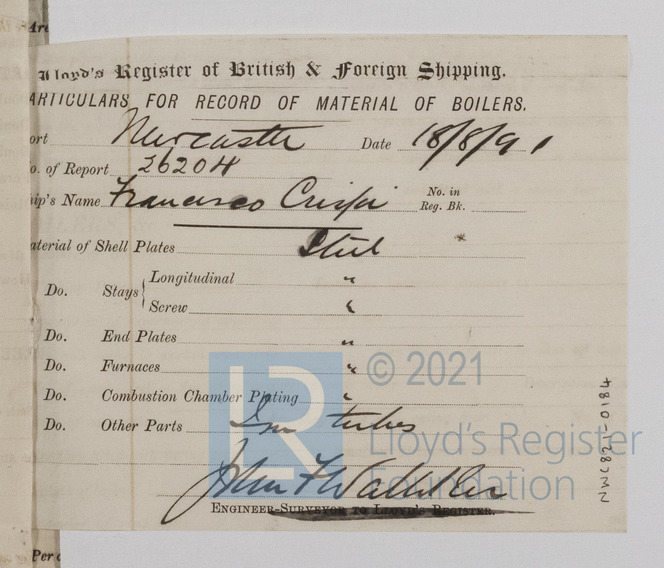 Lloyd's Register of British & Foreign Shipping.
ARTICULARS FOR RECORD OF MATERIAL OF BOILERS.
ort Newcastle Date 18/8/91
o. of Report 26204
ip's Name Francisco Crispi No. in Reg. Bk.
aterial of Shell Plates Steel
Do. Stays { Longitudinal "
Screw "
Do. End Plates "
Do. Furnaces "
Do. Combustion Chamber Plating "
Do. Other Parts Iron tubes
John F Walliker
ENGINEER-SURVEYOR TO LLOYD'S REGISTER.
NWC821-0184
Per
LR © 2021
Lloyd's Register
Foundation